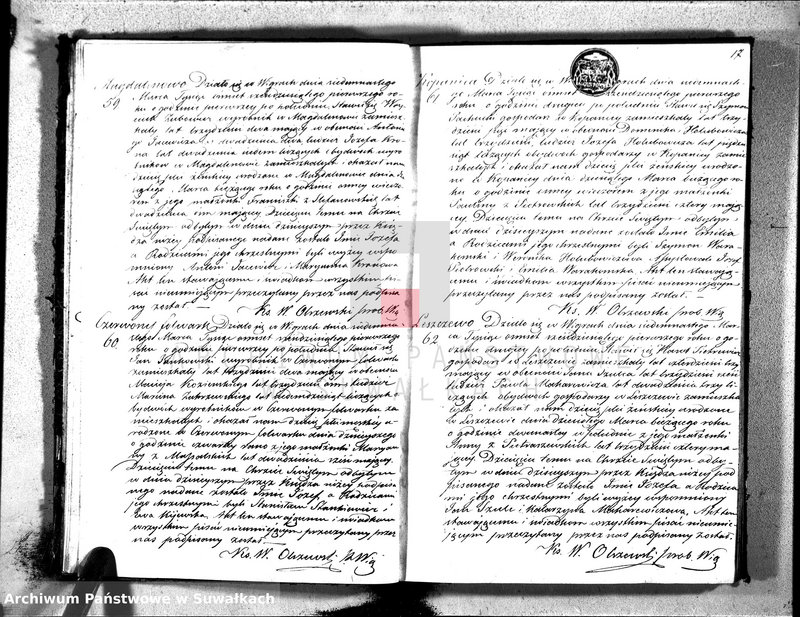 17
Magdalenowo Działo się w Wigrach dnia siedemnastego
59 Marca Tysiąc ośmset sześćdziesiątego pierwszego ro-
ku o godzinie pierwszej po południu. Stawił się Woj-
ciech wyrobnik w Magdalenowie zamiesz-
kały lat trzydzieści dwa mający w obecności Antonie-
go lat dwadzieścia dwa, tudzież Józefa
lat dwadzieścia siedem liczących obydwóch wyro-
bników w Magdalenowie zamieszkałych, i okazał nam
dziecię płci żeńskiej urodzone w Magdalenowie dnia
Marca bieżącego roku o godzinie wieczo-
rem z jego małżonki Franciszki z Stefanowskich lat
dwadzieścia mającej. Dziecięciu temu na Chrzcie
Świętym odbytym w dniu dzisiejszym przez Księ-
dza niżej podpisanego nadane zostało Imię Józefa
a Rodzicami jego chrzestnymi byli wyżej wspo-
mniony Antoni i Maryanna
Akt ten stawającemu i świadkom wszystkim
pisać nieumiejącym przeczytany przez nas podpisa-
ny został.
Ks. W. Olszewski prob. Wig
Czerwony folwark Działo się w Wigrach dnia siedemna-
60 stego Marca Tysiąc ośmset sześćdziesiątego pierwszego
roku o godzinie pierwszej po południu. Stawił się
Jan Stankiewicz wyrobnik w Czerwonym folwarku
zamieszkały lat trzydzieści dwa mający w obecności
Macieja lat trzydzieści ośm tudzież
Marcina lat siedmdziesiąt liczących
obydwóch wyrobników w Czerwonym folwarku za-
mieszkałych, i okazał nam dziecię płci męskiej u-
rodzone w Czerwonym folwarku dnia dzisiejszego
o godzinie czwartej rano z jego małżonki Maryan-
ny z lat dwadzieścia mającej
Dziecięciu temu na Chrzcie Świętym odbytym
w dniu dzisiejszym przez Księdza niżej podpisa-
nego nadane zostało Imię Józef, a Rodzicami
jego chrzestnymi byli Stanisław Stankiewicz i
Ewa Akt ten stawającemu i świadkom
wszystkim pisać nieumiejącym przeczytany przez
nas podpisany został.
Ks. W. Olszewski p. Wig
Kopanica Działo się w Wigrach dnia siedemnaste-
61 go Marca Tysiąc ośmset sześćdziesiątego pierwszego
roku o godzinie drugiej po południu Stawił się Szymon
gospodarz w Kopanicy zamieszkały lat trzy-
dzieści pięć mający w obecności Dominika Hołubowicza
lat trzydzieści, tudzież Józefa Hołubowicza lat pięćdzie-
siąt liczących obydwóch gospodarzy w Kopanicy zamie-
szkałych i okazał nam dziecię płci żeńskiej urodzo-
ne w Kopanicy dnia Marca bieżącego ro-
ku o godzinie wieczorem z jego małżonki
Pauliny z Piotrowskich lat trzydzieści cztery mają-
cej Dziecięciu temu na Chrzcie Świętym odbytym
w dniu dzisiejszym nadane zostało Imię Emilia
a Rodzicami jego chrzestnymi byli Szymon Wara-
komski i Weronika Hołubowiczowa Asystowali Józef
Piotrowski i Emilia Warakomska. Akt ten stawają-
cemu i świadkom wszystkim pisać nieumiejącym
przeczytany przez nas podpisany został.
Ks. W. Olszewski prob. Wig
Leszczewo Działo się w Wigrach dnia siedemnastego Mar-
62 ca Tysiąc ośmset sześćdziesiątego pierwszego roku o go-
dzinie drugiej po południu. Stawił się Karol
gospodarz w Leszczewie zamieszkały lat czterdzieści trzy
mający w obecności Jana Szulca lat trzydzieści
tudzież Pawła Makarewicza lat dwadzieścia trzy li-
czących obydwóch gospodarzy w Leszczewie zamieszka-
łych, i okazał nam dziecię płci żeńskiej urodzone
w Leszczewie dnia dziesiątego Marca bieżącego roku
o godzinie dwunastej w południe z jego małżonki
Anny z Pietraszewskich lat trzydzieści cztery ma-
jącej Dziecięciu temu na Chrzcie Świętym odby-
tym w dniu dzisiejszym przez Księdza niżej pod-
pisanego nadane zostało Imię Józefa a Rodzica-
mi jego chrzestnymi byli wyżej wspomniony
Jan Szulc i Katarzyna Makarewiczowa, Akt ten
stawającemu i świadkom wszystkim pisać nieumie-
jącym przeczytany przez nas podpisany został.
Ks. W. Olszewski prob. Wig
Archiwum Państwowe w Suwałkach